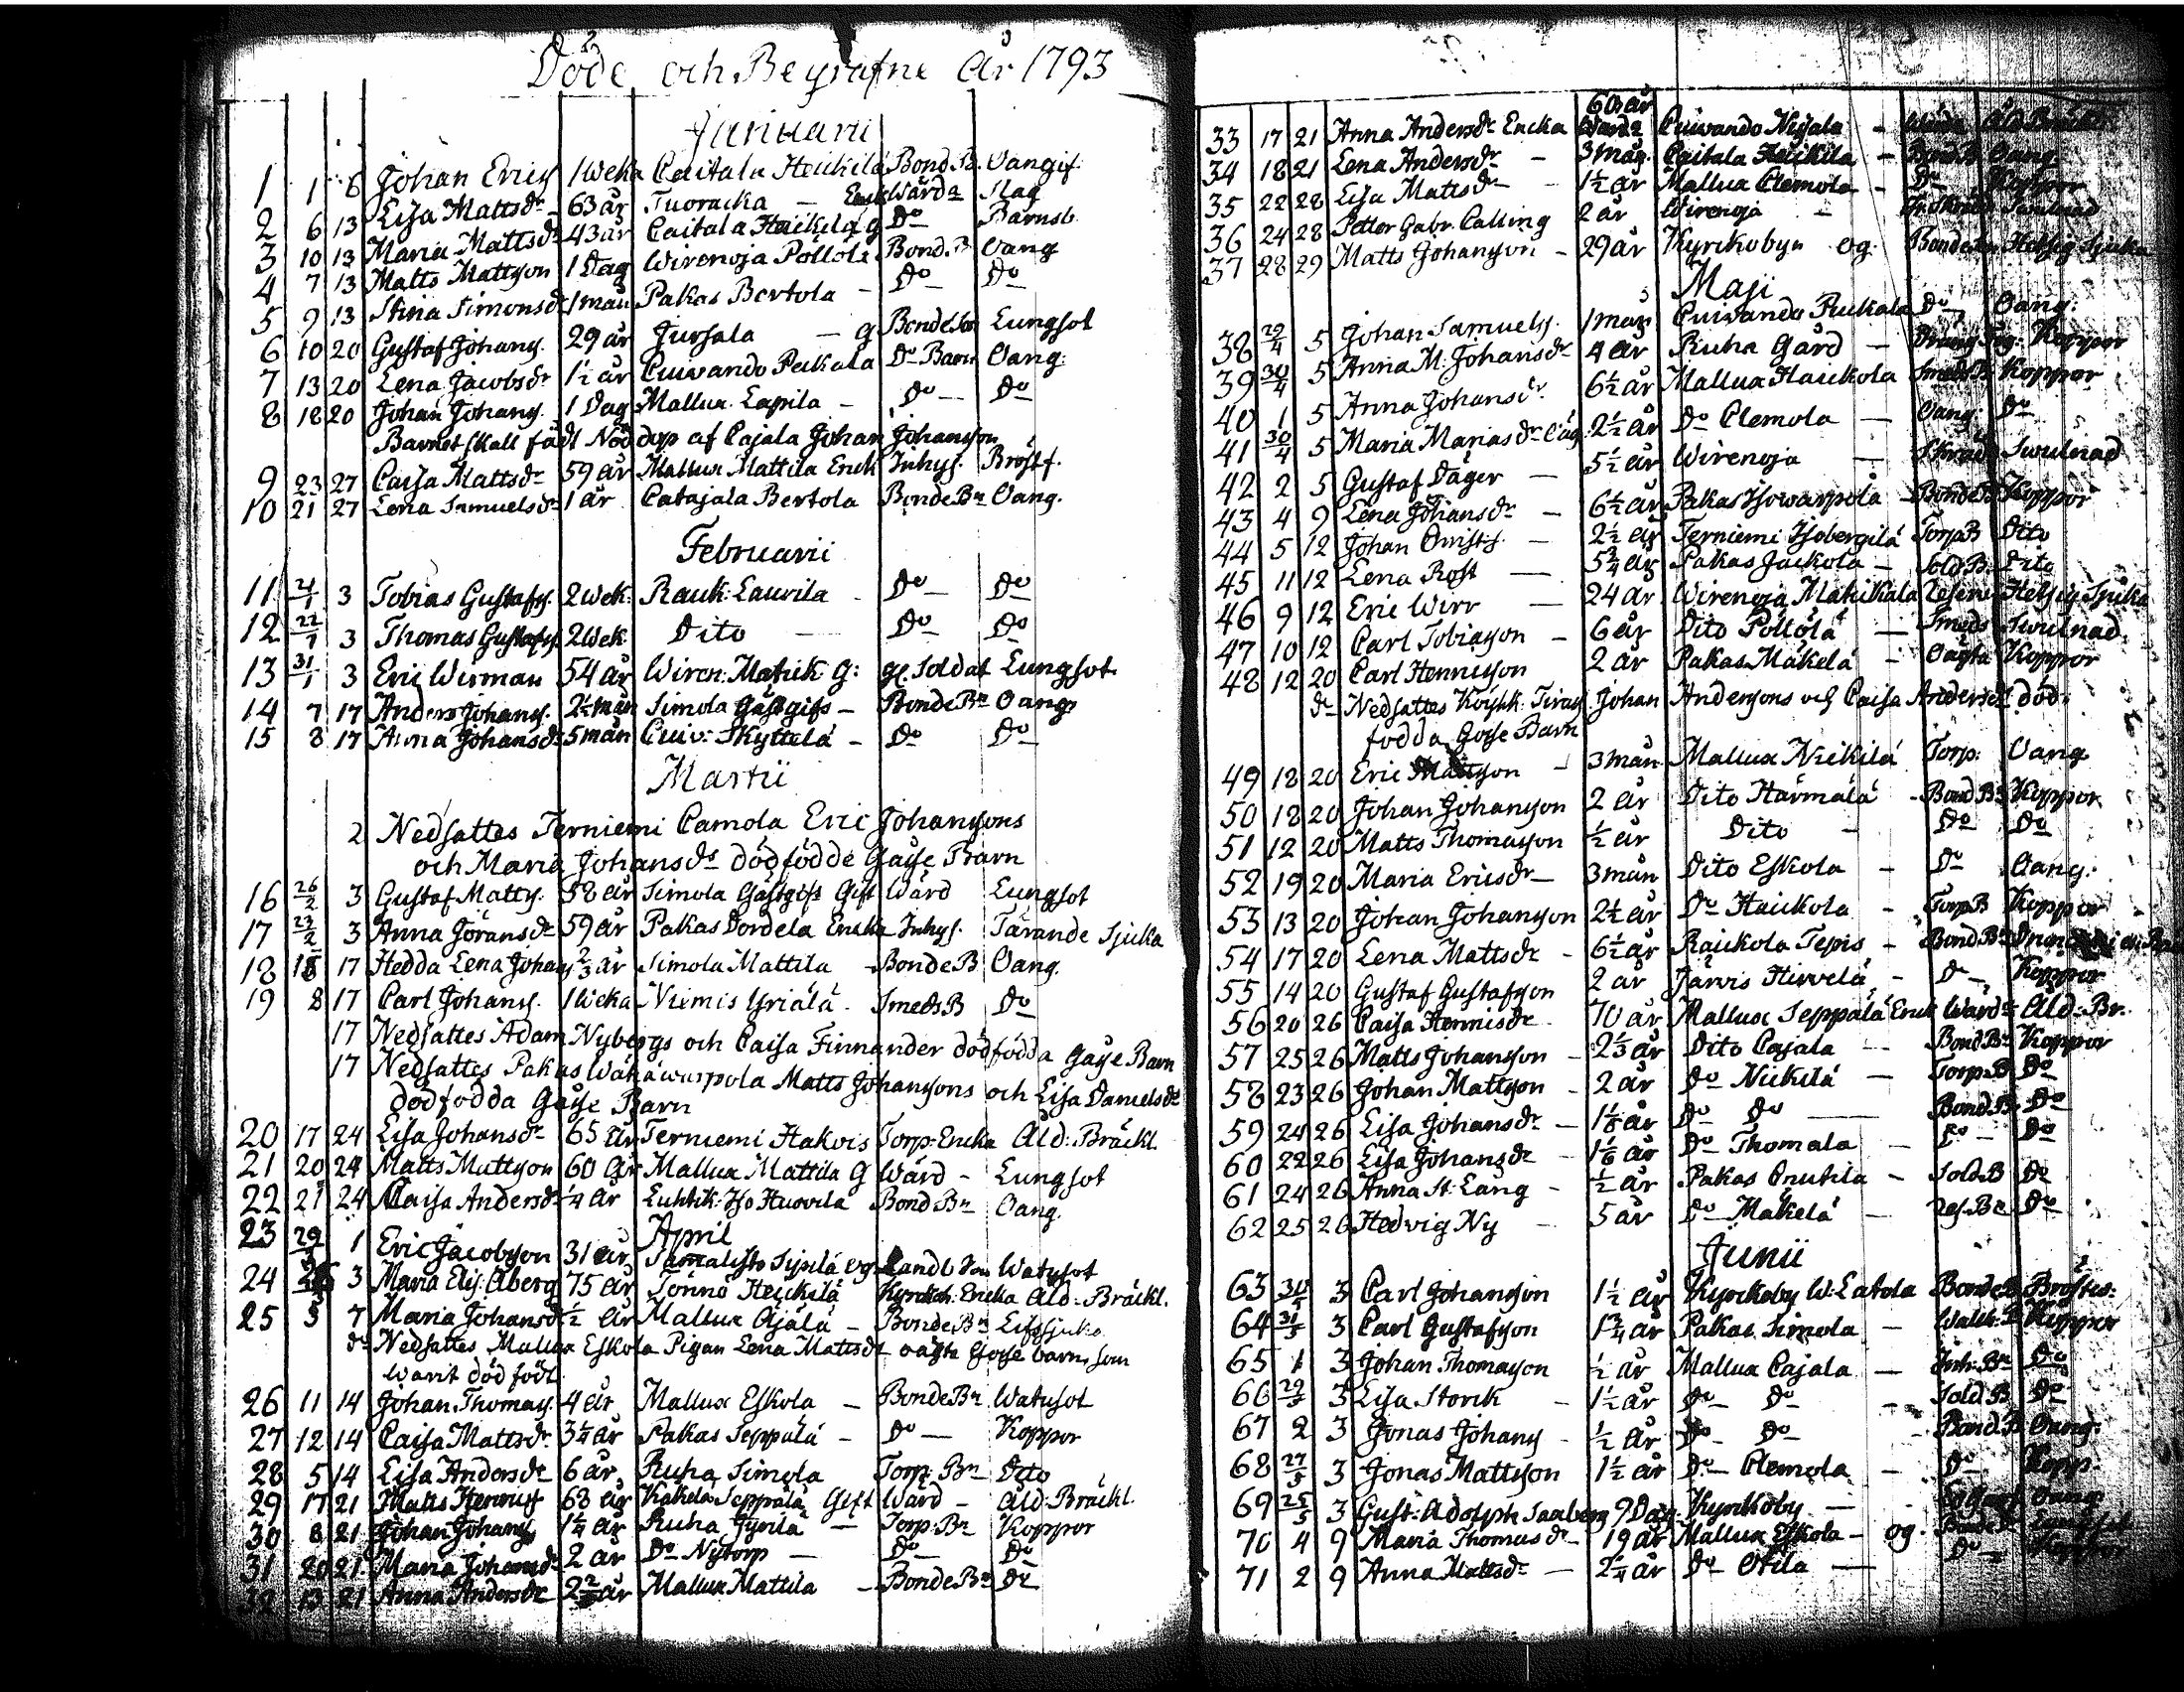 Döde och Begrafne År 1793
Januarii
1 1 6 Johan Erics 1 Weka Caitala Heickilä Bond.B. Oangif.
2 6 13 Lisa Mattsdr 63 år Tuoracka — Enck Wärda Slag
3 10 13 Maria Mattsdr 43 år Caitala Haickilä g Do Barnsb.
4 7 13 Matts Mattsson 1 Dag Wirenoja Pollola Bond.B Oang
5 9 13 Stina Simonsdr 1 mån Pakas Bertola — Do Do
6 10 20 Gustaf Johans. 29 år Jursala — g Bonde Son Lungsot
7 13 20 Lena Jacobsdr 1½ år Cuivando Peckala Do Barn Oang:
8 18 20 Johan Johans. 1 Dag Mallux Lapila — Do Do
Barnet skall fådt Nöddop af Cajala Johan Johansson
9 23 27 Caisa Mattsdr 59 år Mallux Mattila Enck Inhys. Bröstf.
10 21 27 Lena Samuelsdr 1 år Catajala Bertola Bonde Bn Oang.
Februarii
11 21/1 3 Tobias Gustafs. 2 Wek: Rauk: Laurila — Do Do
12 22/1 3 Thomas Gustafs. 2 Wek. Dito — Do Do
13 31/1 3 Eric Wirman 54 år Wiren: Matick g: gl. Soldat Lungsot
14 7 17 Anders Johans. 2½ mån Simola Gästgifs — Bonde Bn Oang
15 8 17 Anna Johansdr 5 mån Cuiv: Skyttelä — Do Do
Martii
2 Nedsattes Terniemi Camola Eric Johanssons
och Maria Johansdr dödfödde Gosse Barn
16 26/2 3 Gustaf Matts. 58 år Simola Gästgifs Gift Wärd Lungsot
17 23/2 3 Anna Göransdr 59 år Pakas Dordela Encka Inhys. Tärande Sjuka
18 15 17 Hedda Lena Johans 2/3 år Simola Mattila — Bonde B Oang.
19 8 17 Carl Johans. 1 Weka Niemis Yriälä — Smeds B Do
17 Nedsattes Adam Nybergs och Caisa Finnander dödfödda Gosse Barn
17 Nedsattes Pakas Wähäwarpola Matts Johanssons och Lisa Danielsdr
dödfödda Gosse Barn
20 17 24 Lisa Johansdr 65 år Terniemi Hakois Torp: Encka Åld: Bräckl.
21 20 24 Matts Mattsson 60 år Mallux Mattila G Wärd — Lungsot
22 21 24 Caisa Andersdr ¼ år Luhtik: Iso Huovila Bond Bn Oang.
April
23 29/3 1 Eric Jacobsson 31 år Samalisto Sipilä og. Landb. Son Watusot
24 3 Maria Elis. Åberg 75 år Tönnö Heickilä Kyrckh: Encka Åld: Bräckl.
25 3 7 Maria Johansdr ½ år Mallux Ojälä — Bonde Bn
do Nedsattes Mallux Eskola Pigan Lena Mattsdr oägta Gosse barn, som
Warit dödfödt
26 11 14 Johan Thomas. 4 år Mallux Eskola — Bonde Bn Watusot
27 12 14 Caisa Mattsdr 3¼ år Pakas Seppälä — Do — Koppor
28 5 14 Lisa Andersdr 6 år Ruha Simola Torp: Bn Dito
29 17 21 Matts Henrics 68 år Kakelä Seppälä Gift Wärd — Åld: Bräckl.
30 8 21 Johan Johans 1¼ år Ruha Jyrilä — Torp: Bn Koppor
31 20 21 Maria Johansdr 2 år Do Nytorp — Do Do
32 13 21 Anna Andersdr 2 år Mallux Mattila — Bonde Bn Do
33 17 21 Anna Andersdr Encka 60 år Cuivando Nisjala — Åld. Bräckl
34 18 21 Lena Andersdr — 3 mån. Caitala Heickila — Bond B Oang.
35 22 28 Lisa Mattsdr — 1½ år Mallux Clemola — Do Koppor
36 24 28 Petter Gabr. Calling 2 år Wirenoja — Swulnad
37 28 29 Matts Johansson — 29 år Kyrckobyn og. Bonde Hetsig Sjuka
Maji
38 29/4 5 Johan Samuels. 1 mån Cuivando Peckala Do Oang.
39 30/4 5 Anna M. Johansdr 4 år Ruha Gård — Dräng Koppor
40 1 5 Anna Johansdr 6½ år Mallux Haickola Smeds B Koppor
41 30/4 5 Maria Mariasdr Oäg. 2½ år Do Clemola — Oäng: Do
42 2 5 Gustaf Dager — 5½ år Wirenoja — Skräd Swulnad
43 4 9 Lena Johansdr — 6½ år Pakas Isowarpola — Bonde B Koppor
44 5 12 Johan Christs. — 2½ år Terniemi Isobergilä Torp B Dito
45 11 12 Lena Rost — 5¾ år Pakas Jackola — Sold B. Dito
46 9 12 Eric Wirr — 24 år Wirenoja Matikala Reserv Hetsig Sjuka
47 10 12 Carl Tobiasson — 6 år Dito Pollölä — Smeds Swulnad
48 12 20 Carl Hennisson 2 år Pakas Mäkelä — Oägta Koppor
do Nedsattes Johan Anderssons och Caisa Andersdr död-
födda Gosse Barn
49 18 20 Eric Mattsson — 3 mån Mallux Nickilä Torp: Oang
50 18 20 Johan Johansson 2 år Dito Härmälä — Bond Bn Koppor
51 12 20 Matts Thomasson ½ år Dito — Do Do
52 19 20 Maria Ericsdr — 3 mån Dito Eskola — Do Oang.
53 13 20 Johan Johansson 2½ år Do Haickola — Torp B Koppor
54 17 20 Lena Mattsdr — 6½ år Raickola Tepis — Bond Bn
55 14 20 Gustaf Gustafsson 2 år Jarvis Hirvelä — Do Koppor
56 20 26 Caisa Hennisdr 70 år Mallux Seppälä Enck Wärd Åld: Br.
57 25 26 Matts Johansson — 2⅓ år Dito Cajala — Bond Bn Koppor
58 23 26 Johan Mattsson — 2 år Do Nickilä — Torp. B Do
59 24 26 Lisa Johansdr — 1⅙ år Do Do — Bond. B Do
60 22 26 Lisa Johansdr — 1⅙ år Do Thomala — Do Do
61 24 26 Anna St. Lång — ½ år Pakas Cnutila — Sold. B Do
62 25 26 Hedvig Ny — 5 år Do Mäkelä — Res. Bn Do
Junii
63 30/5 3 Carl Johansson 1½ år Kyrckoby W: Latola Bonde B Bröstw:
64 31/5 3 Carl Gustafsson 1¾ år Pakas Simola — Koppor
65 1 3 Johan Thomasson ½ år Mallux Cajala — Inh: Bn Do
66 29/5 3 Lisa Storck — 1½ år Do Do — Sold. B Do
67 2 3 Jonas Johans — ½ år Do Do Bond. B Oang.
68 27/5 3 Jonas Mattsson 1½ år Do Clemola — Do Kopp.
69 25/5 3 Gust: Adolph Saxberg 9 Dag. Kyrckoby — Oang
70 4 9 Maria Thomasdr 19 år Mallux Eskola — og. Bonde Dr Lungsot
71 2 9 Anna Mattsdr — 2¼ år Do Otila — Do Koppor